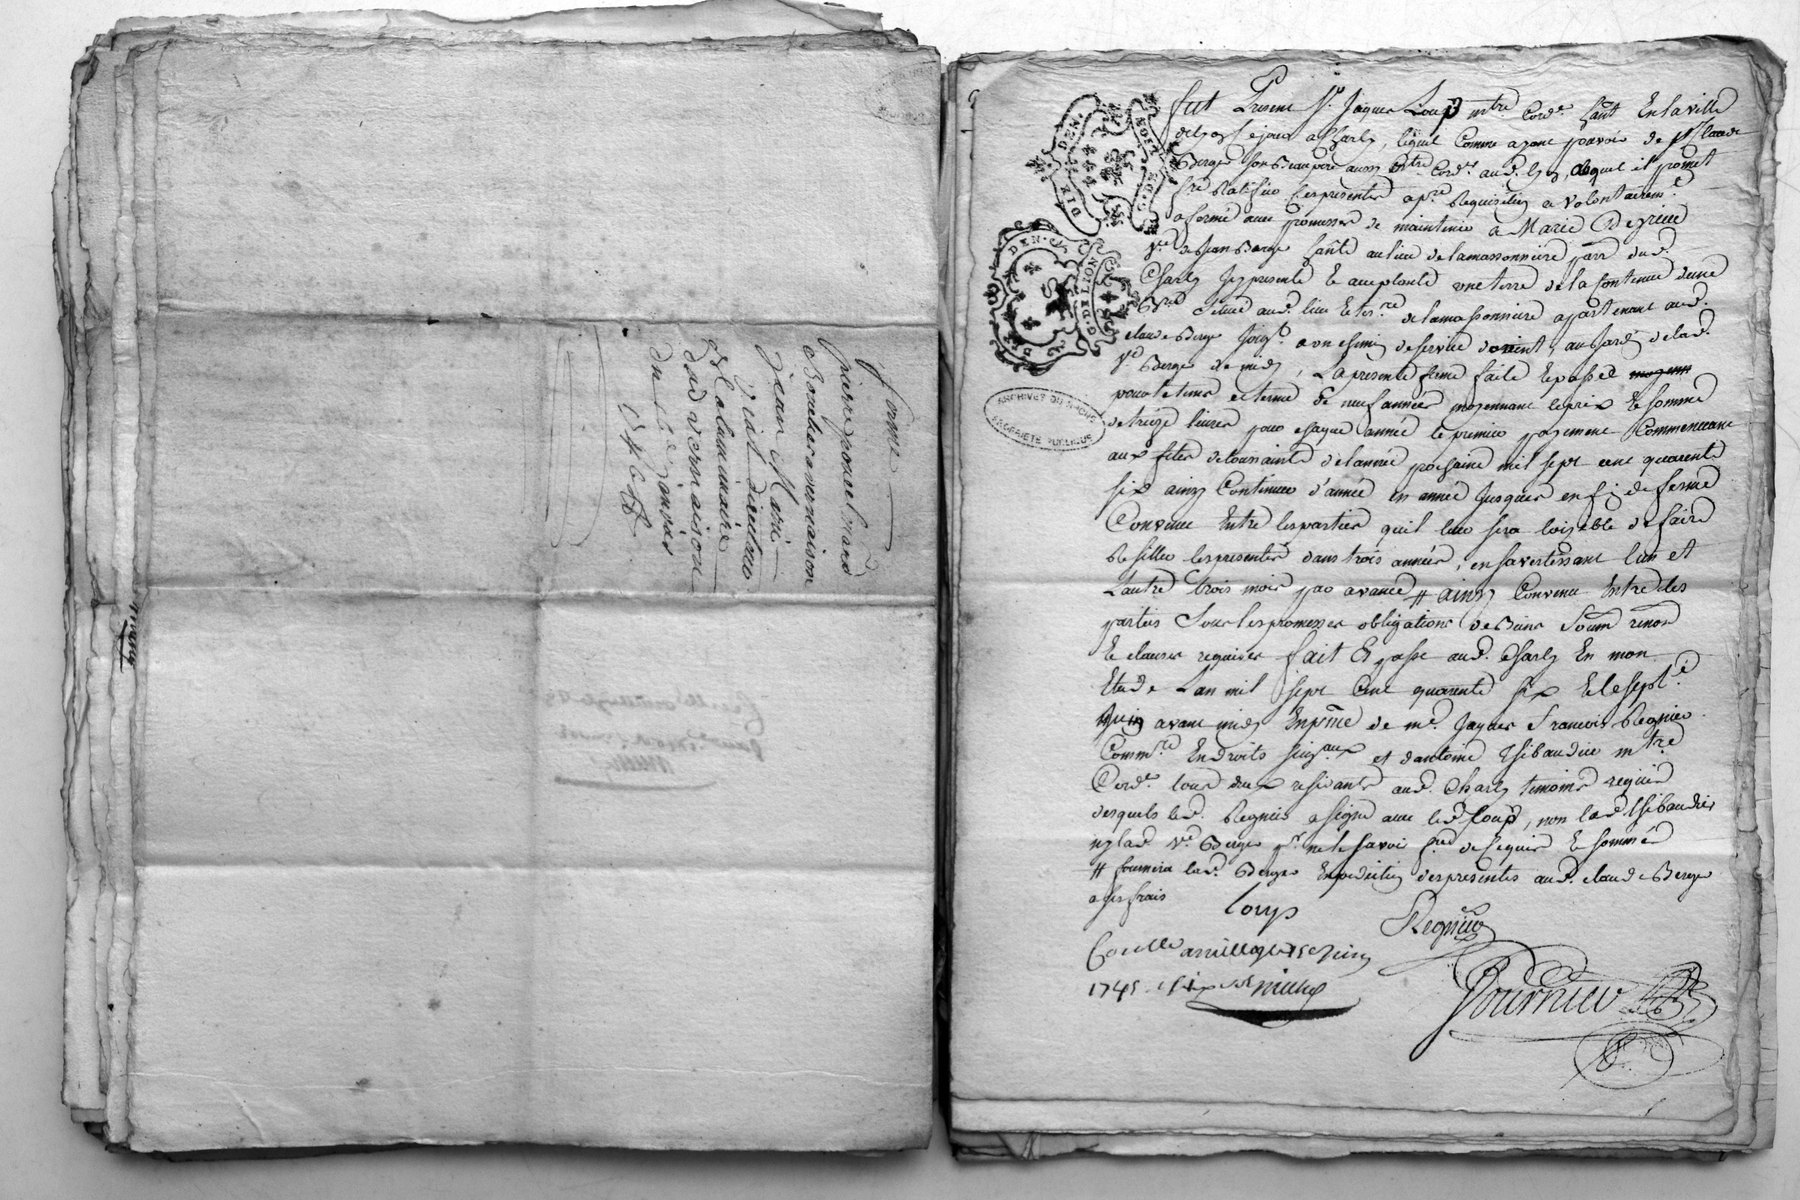 ferme
pierre poncet
Boucher a vernaison
jean Marie
Vial directeur
et le luminaire
dud vernaison
du janvier
1746
fut Present Sr. Jaques Loup mtre Cordr. hant En la ville
de Lyon sejour a Charly, lequel Comme ayant pouvoir de Sr. Claude
Berger son Beaupere aussy mtre Cordr. aud. Lyon, duquel il promet
fre Ratifier les presentes a pre. Requisition a Volontairemt.
afermé avec promesses de maintenir a Marie
Ve. de Jean Berger hante au lieu de lamassonniere parr dud.
Charly Icy presente & acceptante une terre de la Contenue dune
Situee aud. lieu & terre. de lamassonniere apartenant aud.
claude Berger Joigt. a un chemin de service dorient, au Jardin de lad.
Ve. Berger de midy, La presente ferme faite & passée
pour le tems & terme de neuf années moyennant le prix & Somme
de treize livres pour chaque année le premier payement Commenceant
aux fetes de toussaints de lannée prochaine mil sept cent quarente
six ainsy Continuer d'année en année Jusques en fin de ferme
Convenu Entre les parties quil leur sera loisible de faire
Resillier les presentes dans trois années, en s'avertissant lun et
Lautre trois mois par avance # ainsy Convenu Entre les
parties Sous les promesses obligations de Biens Soum renon
& clauses requises fait & passé aud. Charly En mon
Etude Lan mil sept Cent quarente six & le sept.e
Juin avant midy En pnce de me. Jaques Francois Regnier
Commre. En droits seigaux et dantoine Thibaudier mtre
Cordr. tous deux residants aud. Charly temoins requis
desquels led. Regnier a signé avec led. Loup, non led Thibaudier
ny lad Ve. Berger pr. ne le savoir fre. de ce enquis & sommés
# fournira lad. Berger Expedition des presentes aud. claude Berger
a ses frais
Loup
Regnier
Conllé a millery le 15e Juin
1745
Fournier
ARCHIVES DU RHONE
PROPRIETE PUBLIQUE
G. DE LION
DIX DEN.